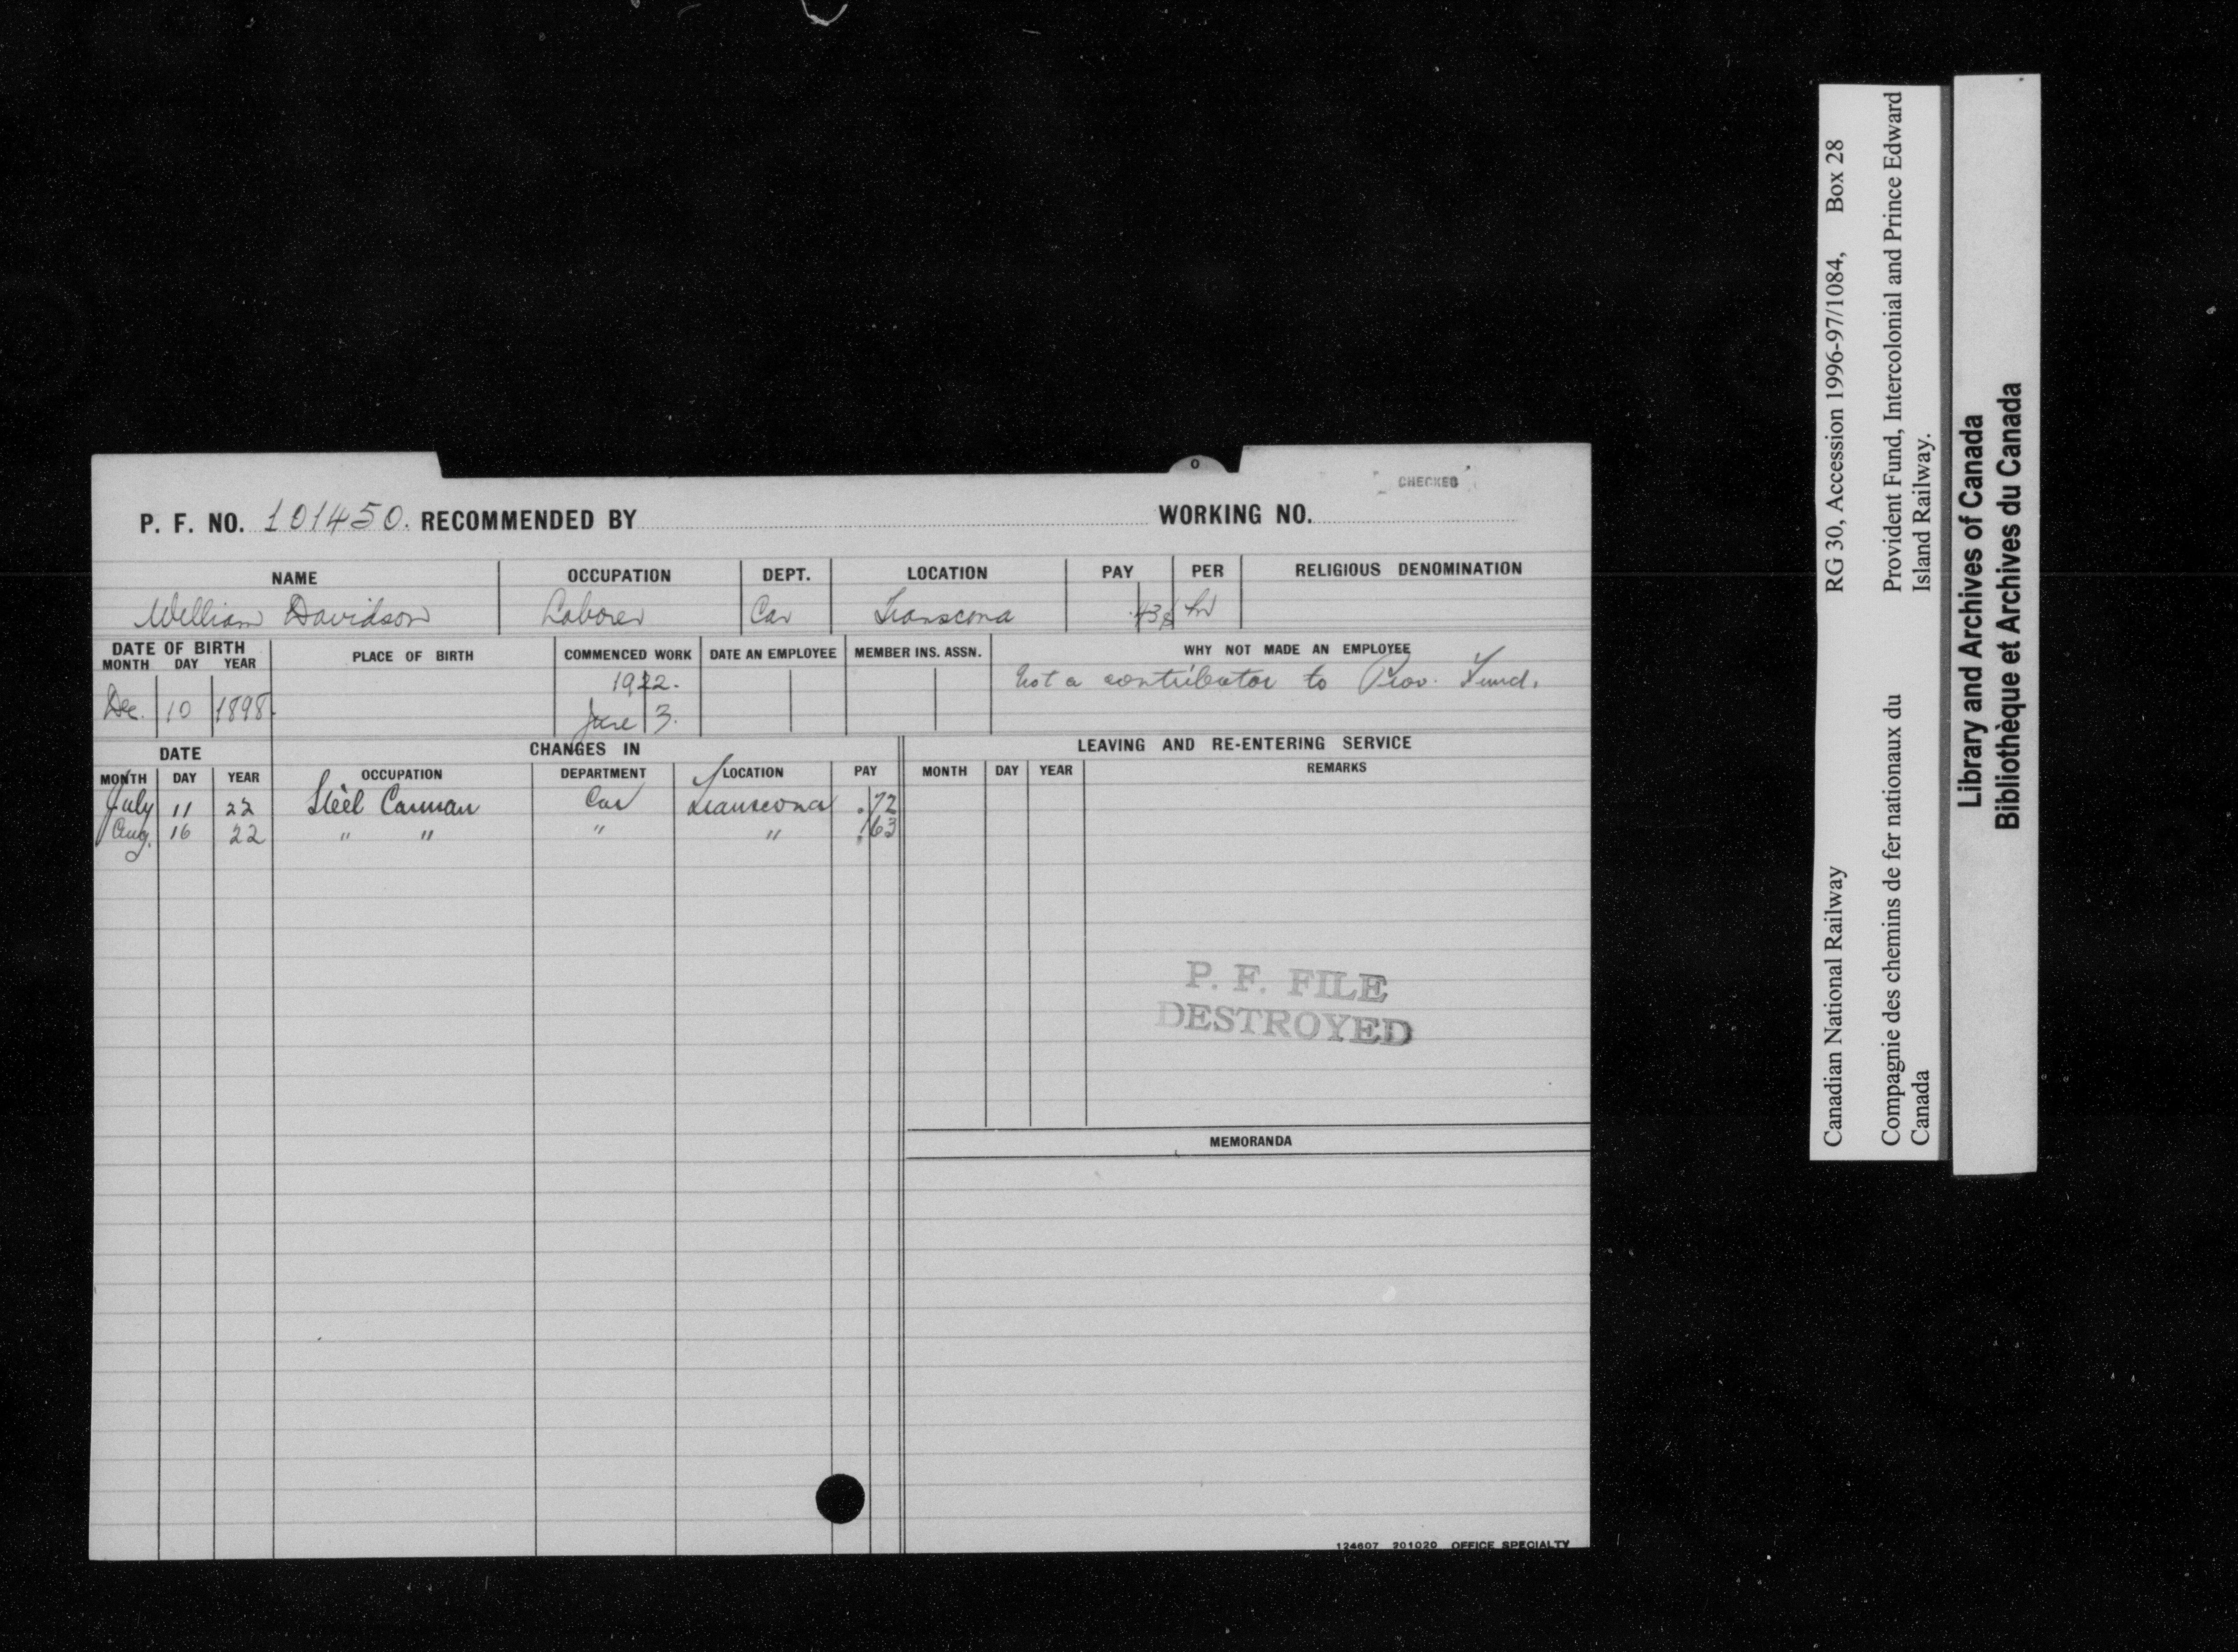 CHECKED
P. F. NO. 101450. RECOMMENDED BY WORKING NO.
NAME OCCUPATION DEPT. LOCATION PAY PER RELIGIOUS DENOMINATION
William Davidson Laborer Car Transcona .43½ hr
DATE OF BIRTH PLACE OF BIRTH COMMENCED WORK DATE AN EMPLOYEE MEMBER INS. ASSN. WHY NOT MADE AN EMPLOYEE
MONTH DAY YEAR
1922. Not a contributor to Prov. Fund.
Dec. 10 1898. June 3.
DATE CHANGES IN LEAVING AND RE-ENTERING SERVICE
MONTH DAY YEAR OCCUPATION DEPARTMENT LOCATION PAY MONTH DAY YEAR REMARKS
July 11 22 Steel Carman Car Transcona .72
Aug. 16 22 " " " " .63
P. F. FILE
DESTROYED
MEMORANDA
124607 201020 OFFICE SPECIALTY
Canadian National Railway RG 30, Accession 1996-97/1084, Box 28
Compagnie des chemins de fer nationaux du Provident Fund, Intercolonial and Prince Edward
Canada Island Railway.
Library and Archives of Canada
Bibliothèque et Archives du Canada